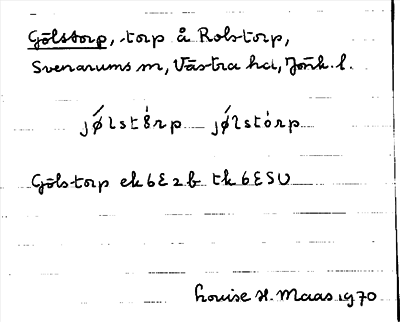 Gölstorp, torp å Rolstorp,
Svenarums sn, Västra hd, Jönk. l.
jǿ̷lstȯ́rp jǿlstȯrp
Gölstorp ek 6E2b tk 6E5U
Louise H. Maas 1970